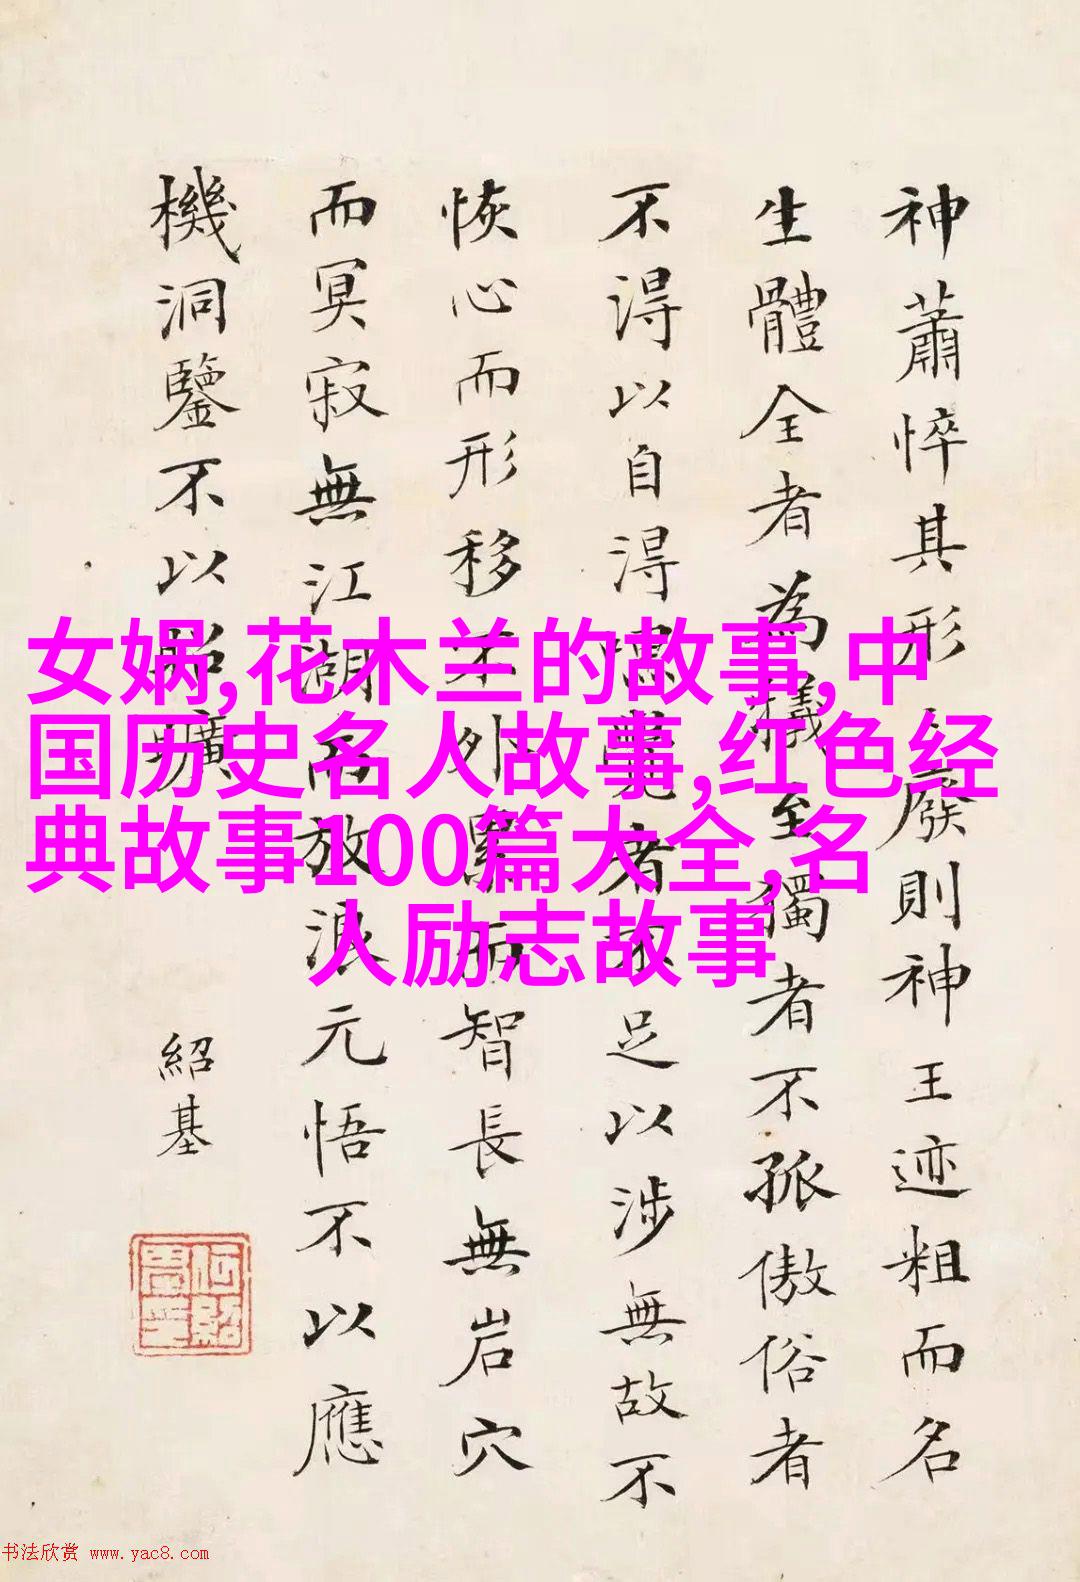 神蕭悴其形廢則神王迹粗而名
生體全者為犧至獨者不孤傲俗者
不得以自得覽者不足以涉無故不
恢心而形移不外累智長無岩穴
而冥寂無江湖而放浪元悟不以應
機洞鑒不以昭曠
紹基
女娲,花木兰的故事,中
国历史名人故事,红色经
典故事100篇大全,名
人励志故事
书法欣赏 www.yac8.com